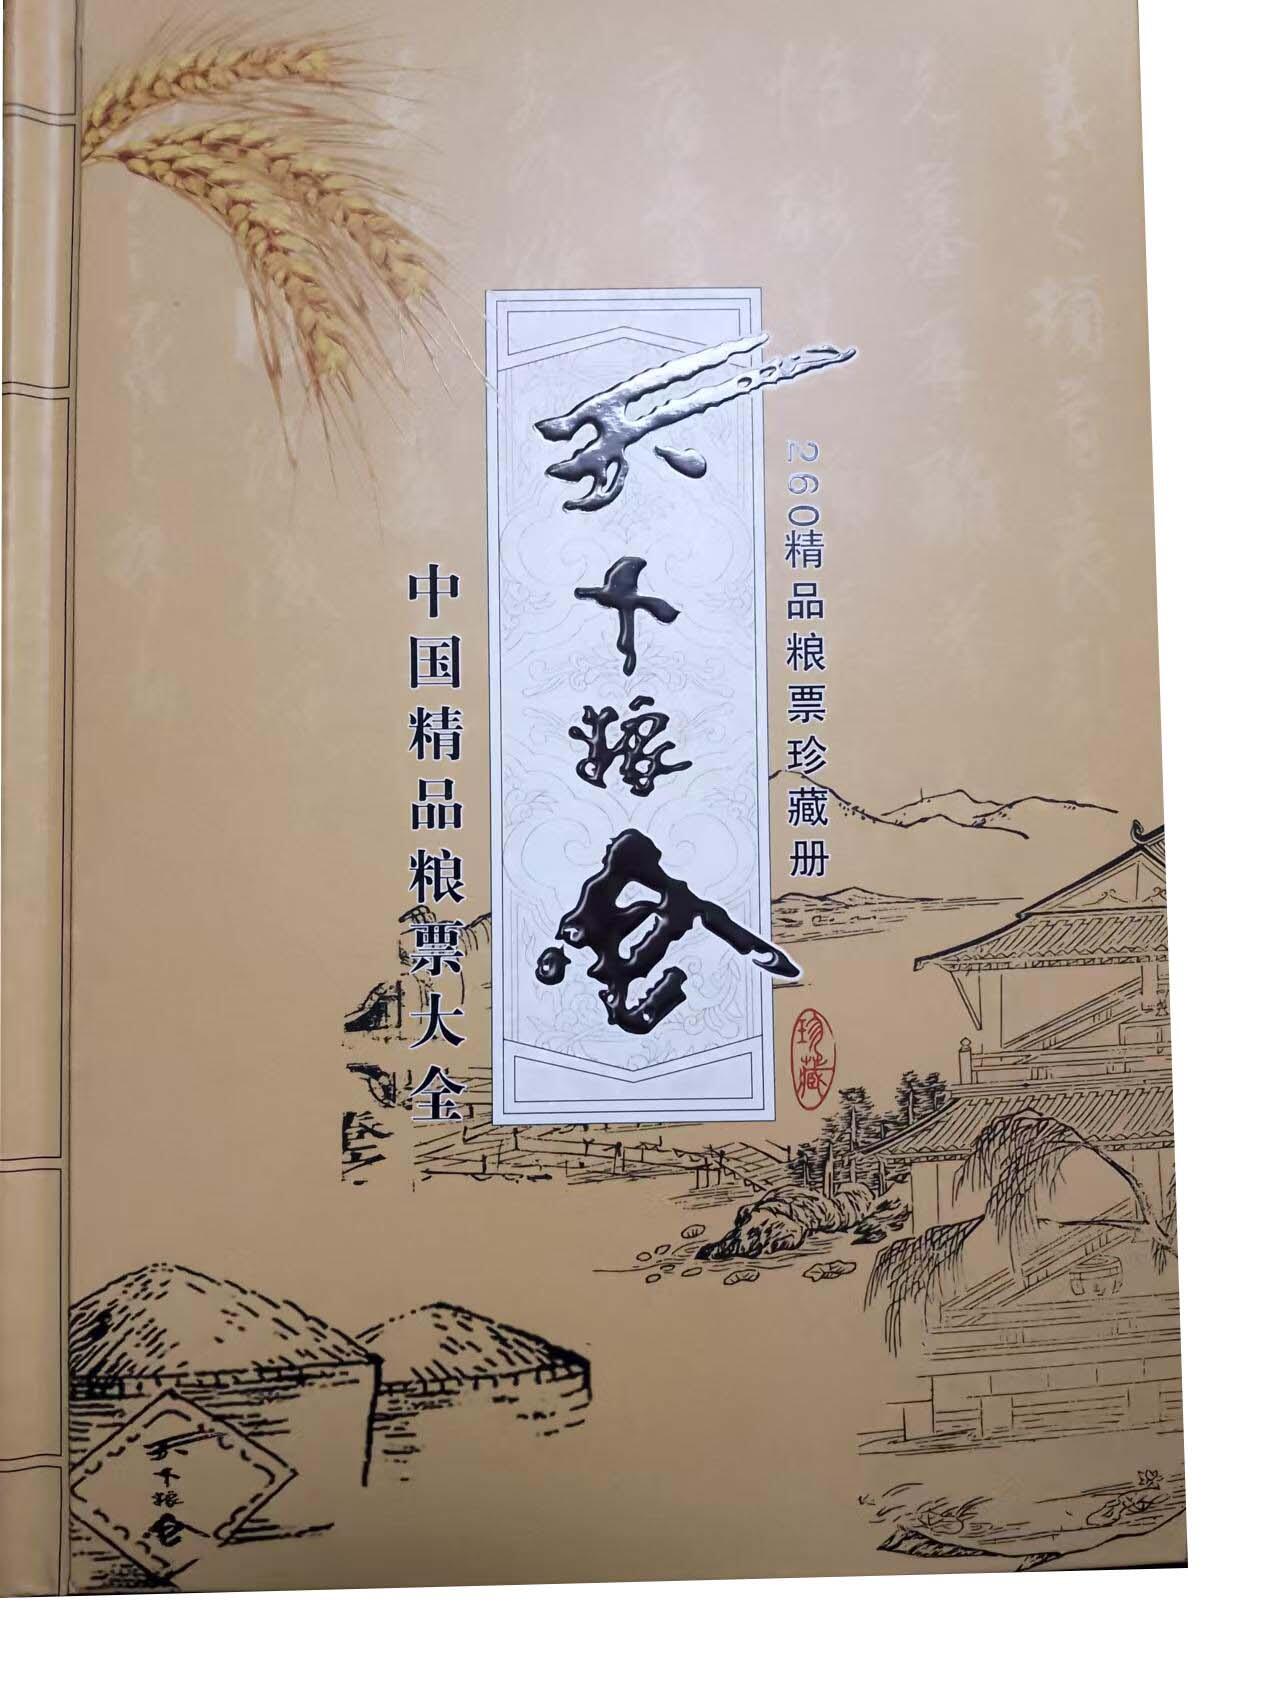 260精品粮票珍藏册
天下粮仓
中国精品粮票大全
珍藏
天下粮仓